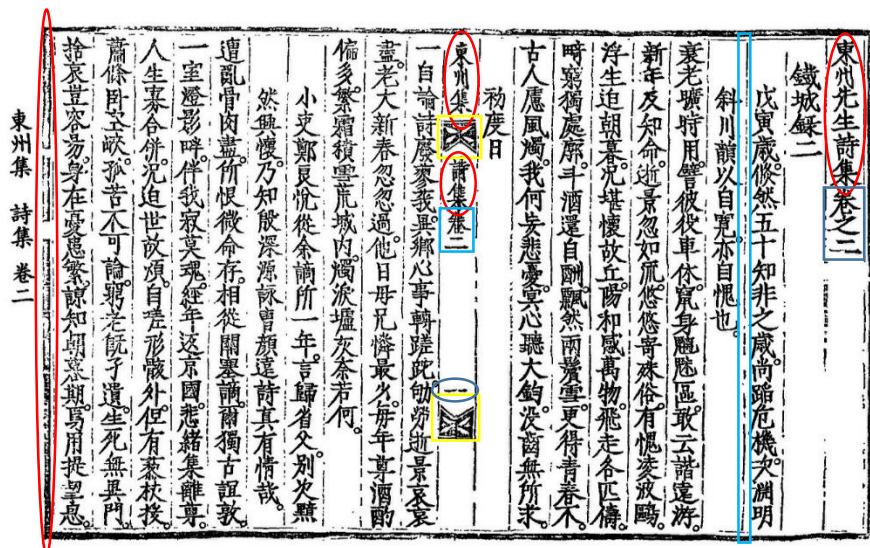 東州先生詩集卷之二
鐵城錄二
戊寅歲倏然五十知非之歲尚蹈危機次淵明
斜川韻以自寬亦自愧也。
衰老曠時用。譬彼役車休。竄身魑魅區。敢云諧遠游。
新年反知命。逝景忽如流。悠悠寄殊俗。有愧凌波鷗。
浮生迫朝暮。況堪懷故丘。陽和感萬物。飛走各匹儔。
時窮獨處廓。斗酒還自酬。飄然兩鬢雪。更得青春不。
古人慮風燭。我何妄悲憂。冥心聽大鈞。沒齒無所求。
初度日
東州集 詩集卷二 一
一自論詩廢蓼莪。異鄉心事轉蹉跎。劬勞逝景哀哀
盡。老大新春忽忽過。他日母兄憐最少。每年尊酒酌
偏多。繁霜積雪荒城內。燭淚爐灰奈若何。
小吏鄭艮悅從余謫所一年。言歸省父。別次黯
然興懷。乃知殷深源詠曹顏遠詩真有情哉。
遭亂骨肉盡。所恨微命存。相從關塞謫。爾獨古誼敦。
一室燈影畔。伴我寂莫魂。經年返京國。悲緒集離尊。
人生寡合併。況迫世故煩。自嗟形骸外。但有藜杖
蕭條臥空峽。孤苦不可論。窮老旣孑遺。生死無異門。
捨哀豈容易。身在憂患繁。諒知朝暮期。焉用提挈
東州集 詩集 卷二